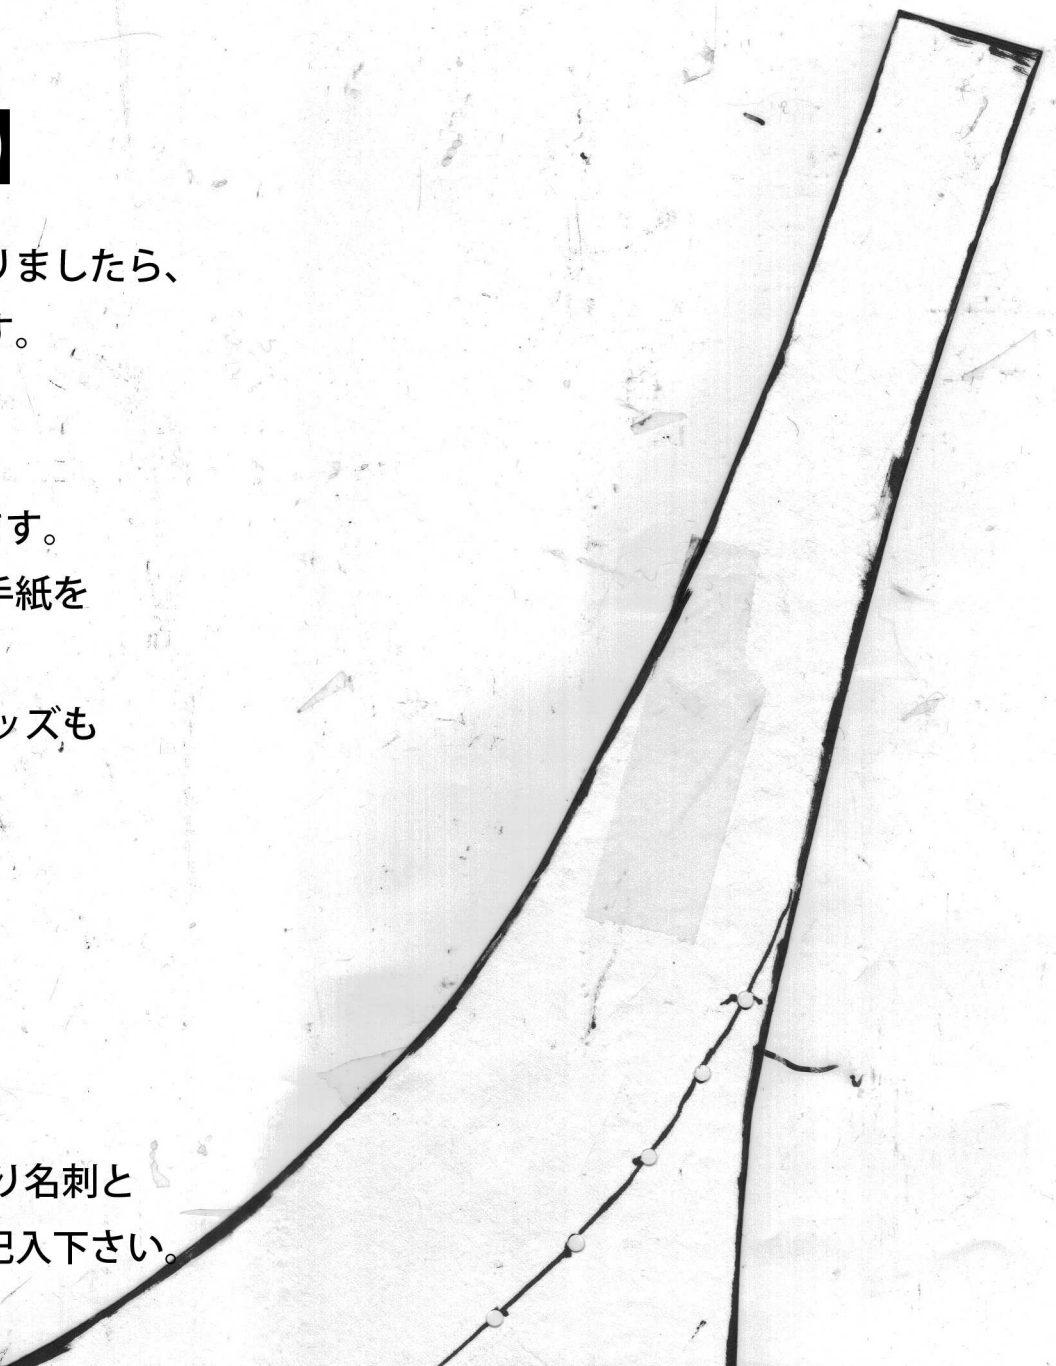 】
りましたら、
す。
ます。
手紙を
ッズも
り名刺と
記入下さい。